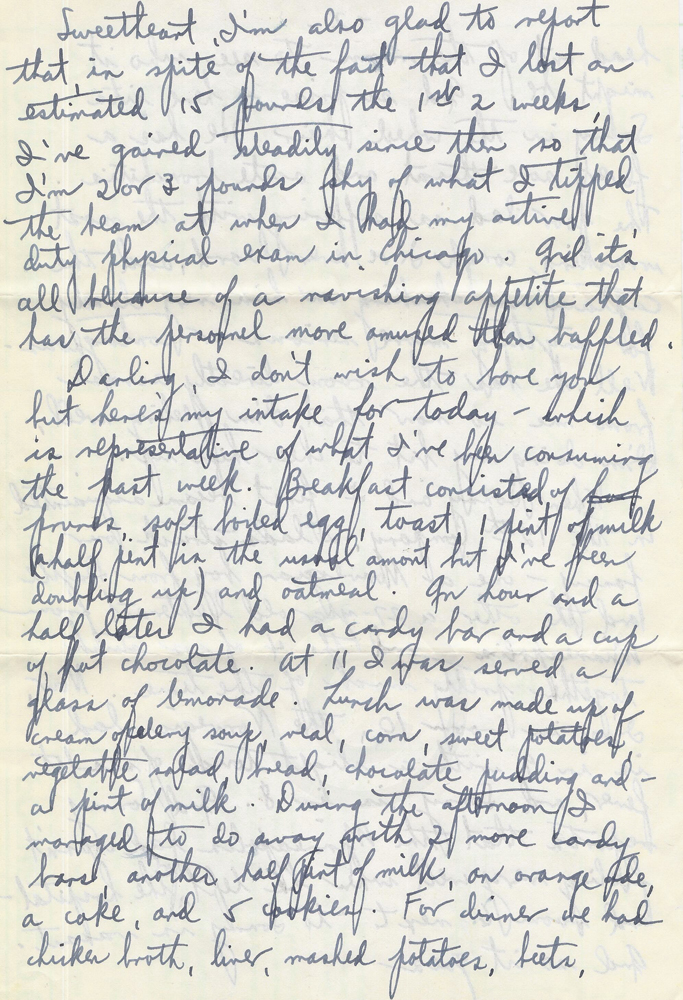 Sweetheart, I'm also glad to report
that, in spite of the fact that I lost an
estimated 15 pounds the 1st 2 weeks,
I've gained steadily since then so that
I'm 2 or 3 pounds shy of what I tipped
the beam at when I had my active
duty physical exam in Chicago. And it's
all because of a ravishing appetite that
has the personnel more amused than baffled.
Darling, I don't wish to bore you
but here's my intake for today - which
is representative of what I've been consuming
the past week. Breakfast consisted of
prunes, soft boiled egg, toast, 1 pint of milk
(half pint is the usual amont but I've been
doubling up) and oatmeal. An hour and a
half later I had a candy bar and a cup
of hot chocolate. At 11 I was served a
glass of lemonade. Lunch was made up of
cream of celery soup, veal, corn, sweet potatoes,
vegetable salad, bread, chocolate pudding and -
a pint of milk. During the afternoon I
managed to do away with 2 more candy
bars, another half pint of milk, an orange ade,
a coke, and 5 cookies. For dinner we had
chicken broth, liver, mashed potatoes, beets,